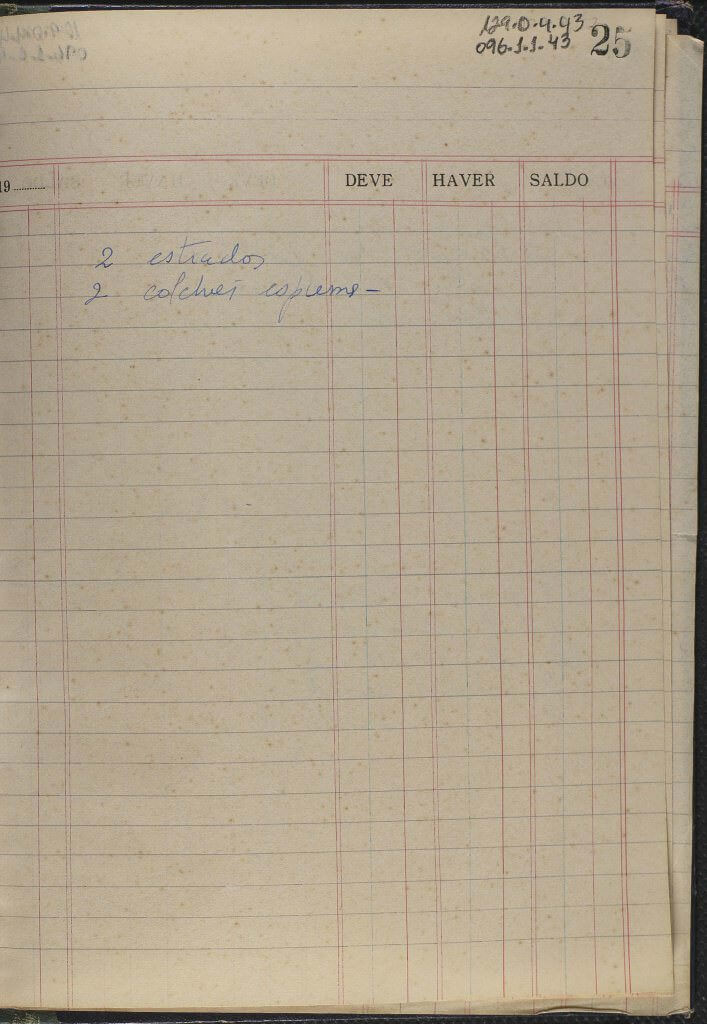 129.0.4.43
096.1.1.43
25
19
DEVE HAVER SALDO
2 estrados
2 colchões espuma -